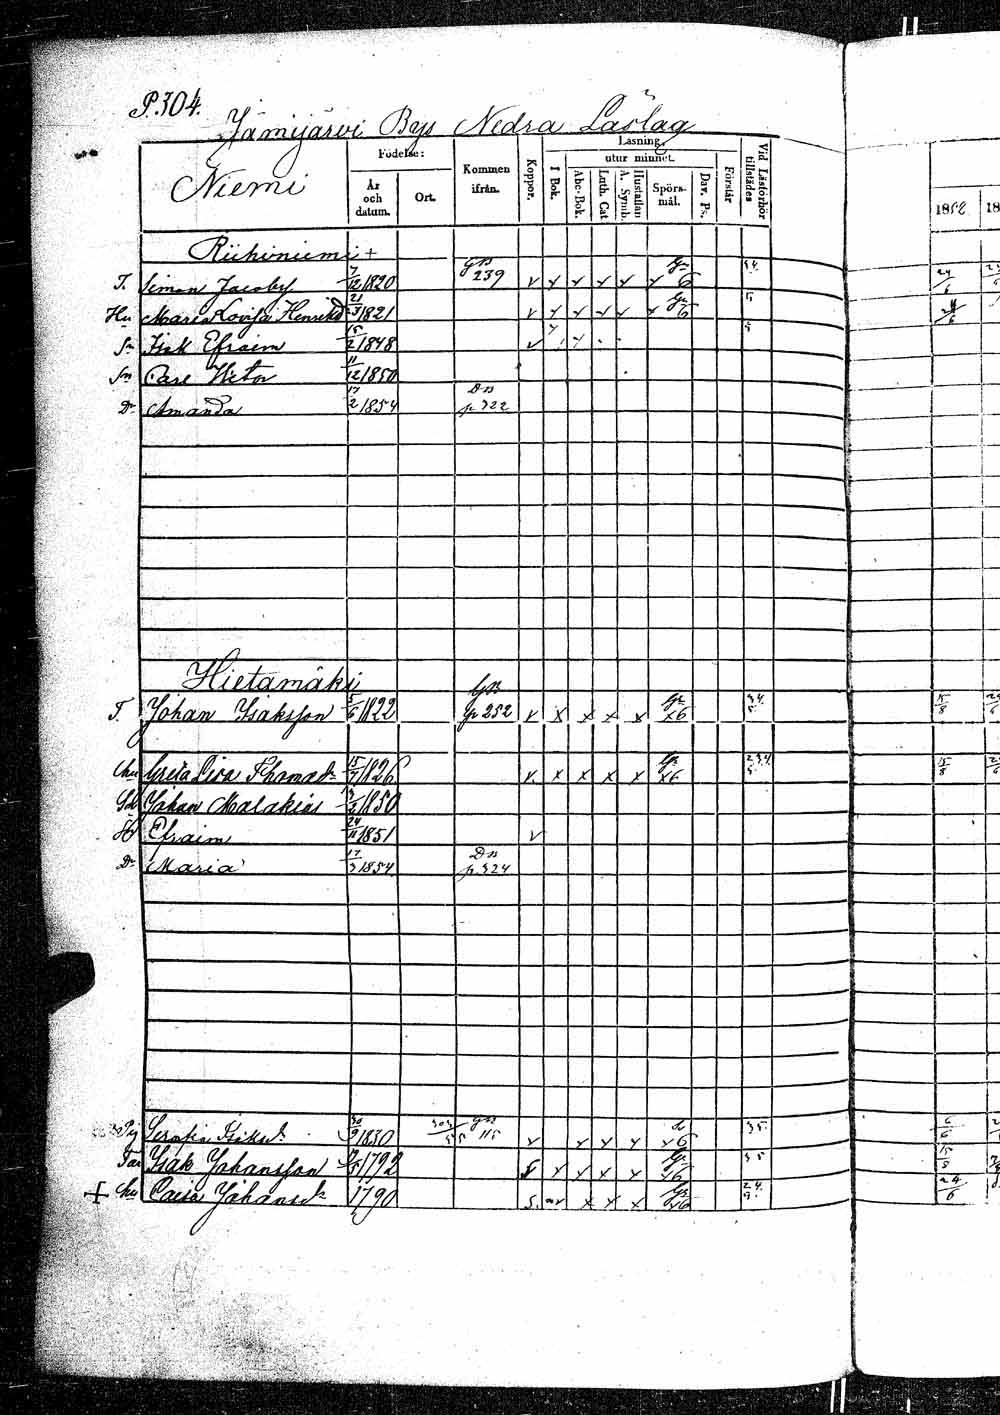 P. 304.
Jämijärvi Bys Nedra Läslag
Niemi
Födelse:
År och datum.
Ort.
Kommen ifrån.
Koppor.
Läsning.
I Bok.
utur minnet.
Abc-Bok.
Luth. Cat.
Hustaflan A. Symb.
Spörs-mål.
Dav. Ps.
Förstår
Vid Läsförhör tillstädes
1852
18
Riihiniemi +
T. Simon Jacobss. 7/12 1820 GB 239 v Gr 6 34. 24/6
Hu Maria Lovisa Henriksd 21/3 1821 v Gr 6 5
Sn Isak Efraim 15/2 1848 v
Sn Carl Victor 11/12 1850
Dr Amanda 17/2 1854 DB p 322
Hietamäki
T. Johan Isaksson 5/6 1822 GB p 252 v x x x x Gr x6 34. 5 15/8
hu Greta Lisa Thomasdr 15/7 1826 v x x x x Gr x6 234. 15/8
Johan Malakias 1850
Efraim 24/11 1851 v
Dr Maria 17/3 1854 DB p. 324
Pig Serafia Isaksdr 30/9 1830 303 GB 115 v x6 35. 6/6
Far Isak Johansson 1792 Gr x6 35 15/8
+ hu Caisa Johansdr 1790 s. x x x Gr x6 24. 24/6